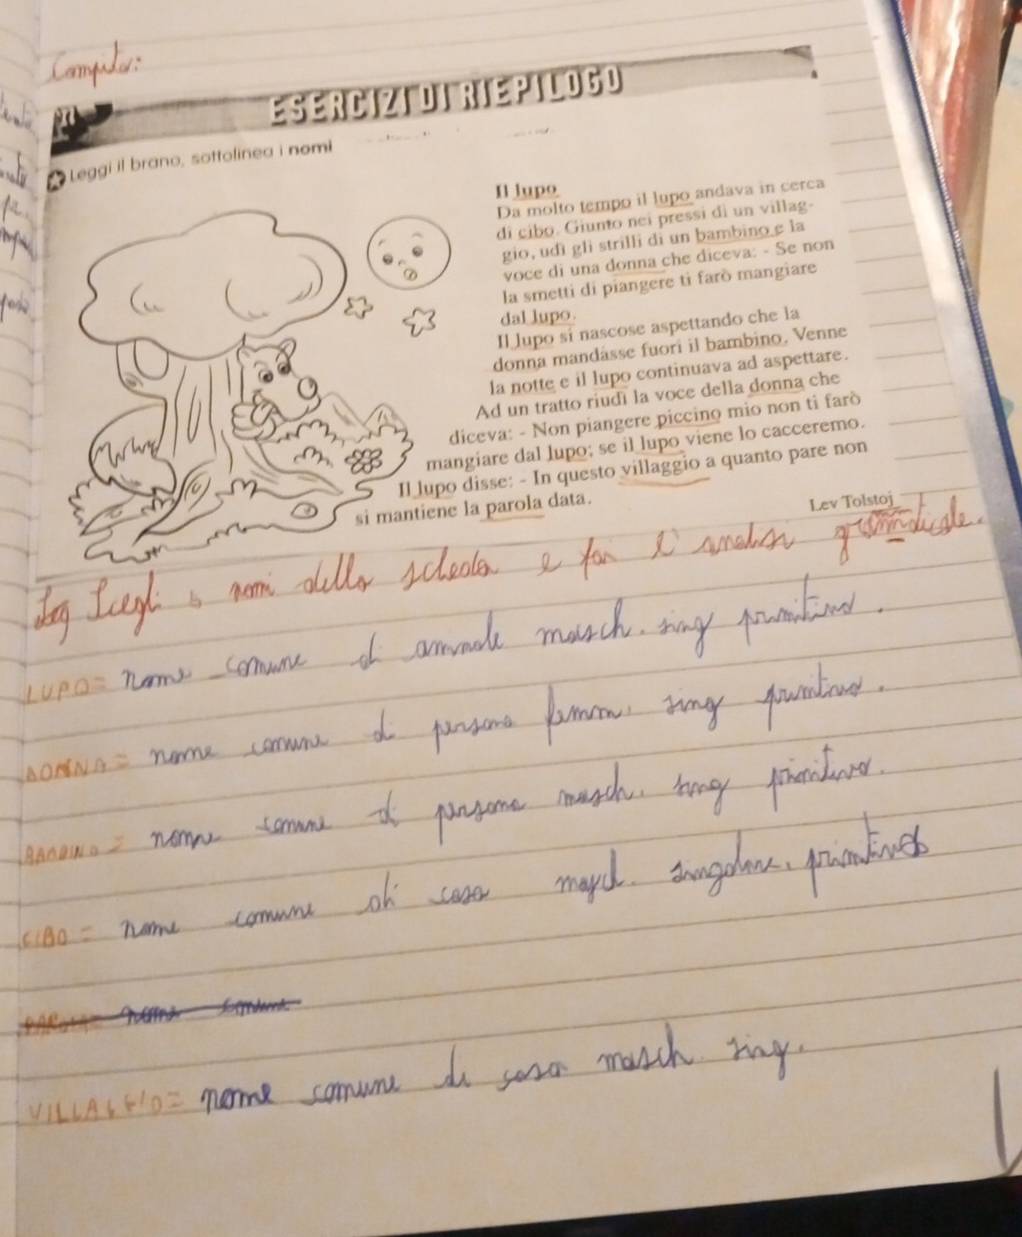 Compito:
ESERCIZI DI RIEPILOGO
Leggi il brano, sottolinea i nomi
Il lupo
Da molto tempo il lupo andava in cerca
di cibo. Giunto nei pressi di un villag-
gio, udì gli strilli di un bambino e la
voce di una donna che diceva: - Se non
la smetti di piangere ti farò mangiare
dal lupo.
Il lupo si nascose aspettando che la
donna mandasse fuori il bambino. Venne
la notte e il lupo continuava ad aspettare.
Ad un tratto riudì la voce della donna che
diceva: - Non piangere piccino mio non ti farò
mangiare dal lupo; se il lupo viene lo cacceremo.
Il lupo disse: - In questo villaggio a quanto pare non
si mantiene la parola data.
Lev Tolstoj
Scegli i nomi della scheda e fai l'analisi grammaticale.
LUPO = nome comune di animale masch. sing primitivo.
DONNA = nome comune di persona femm. sing primitivo.
BAMBINO = nome comune di persona masch. sing primitivo.
CIBO = nome comune di cosa masch. singolare, primitivo
nome comune
VILLAGGIO = nome comune di cosa masch sing.